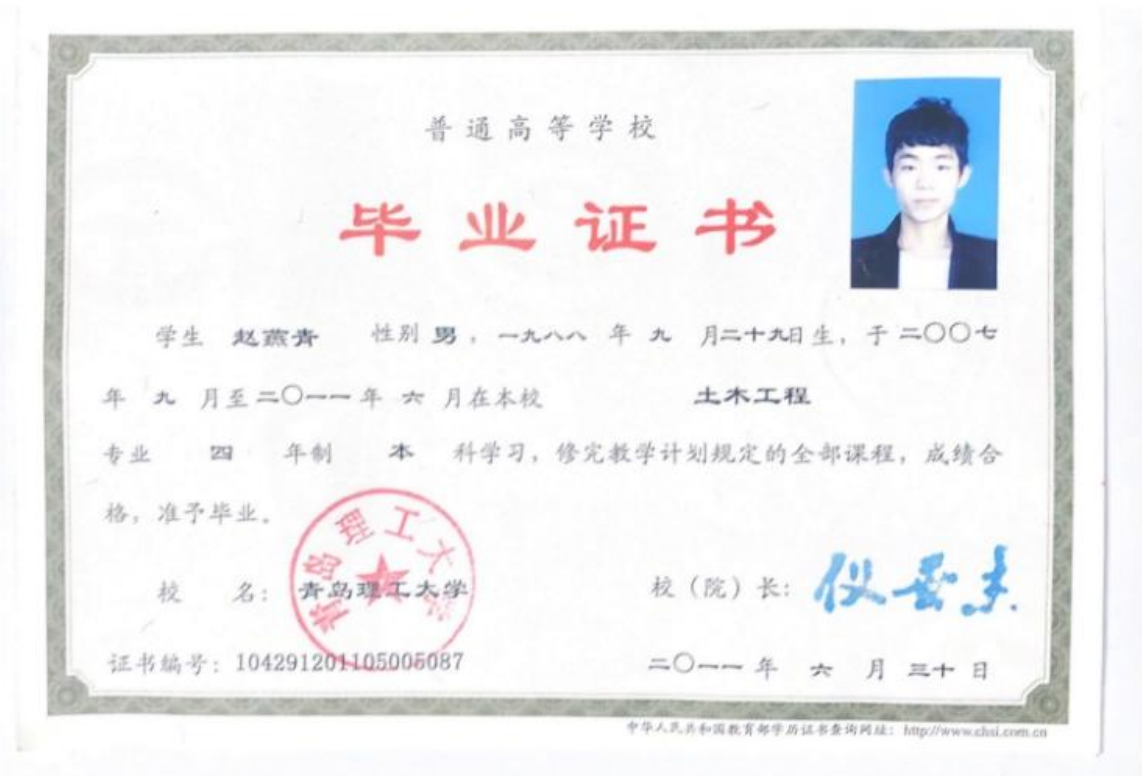 普通高等学校
毕业证书
学生 赵燕青 性别 男，一九八八 年 九 月二十九日生，于 二〇〇七
年 九 月至 二〇一一 年 六 月在本校 土木工程
专业 四 年制 本 科学习，修完教学计划规定的全部课程，成绩合
格，准予毕业。
青岛理工大学
校 名：青岛理工大学 校（院）长：
证书编号：104291201105005087 二〇一一 年 六 月 三十 日
中华人民共和国教育部学历证书查询网址：http://www.chsi.com.cn